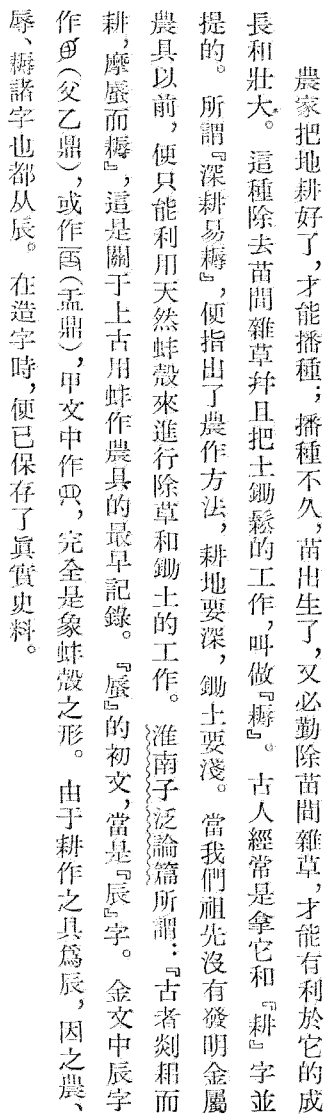 農家把地耕好了，才能播種；播種不久，苗出生了，又必勤除苗間雜草，才能有利於它的成
長和壯大。這種除去苗間雜草幷且把土鋤鬆的工作，叫做『耨』。古人經常是拿它和『耕』字並
提的。所謂『深耕易耨』，便指出了農作方法，耕地要深，鋤土要淺。當我們祖先沒有發明金屬
農具以前，便只能利用天然蚌殼來進行除草和鋤土的工作。淮南子泛論篇所謂：『古者剡耜而
耕，摩蜃而耨』，這是關于上古用蚌作農具的最早記錄。『蜃』的初文，當是『辰』字。金文中辰字
作（父乙鼎），或作（盂鼎），甲文中作，完全是象蚌殼之形。由于耕作之具爲辰，因之農、
辱、耨諸字也都从辰。在造字時，便已保存了眞實史料。